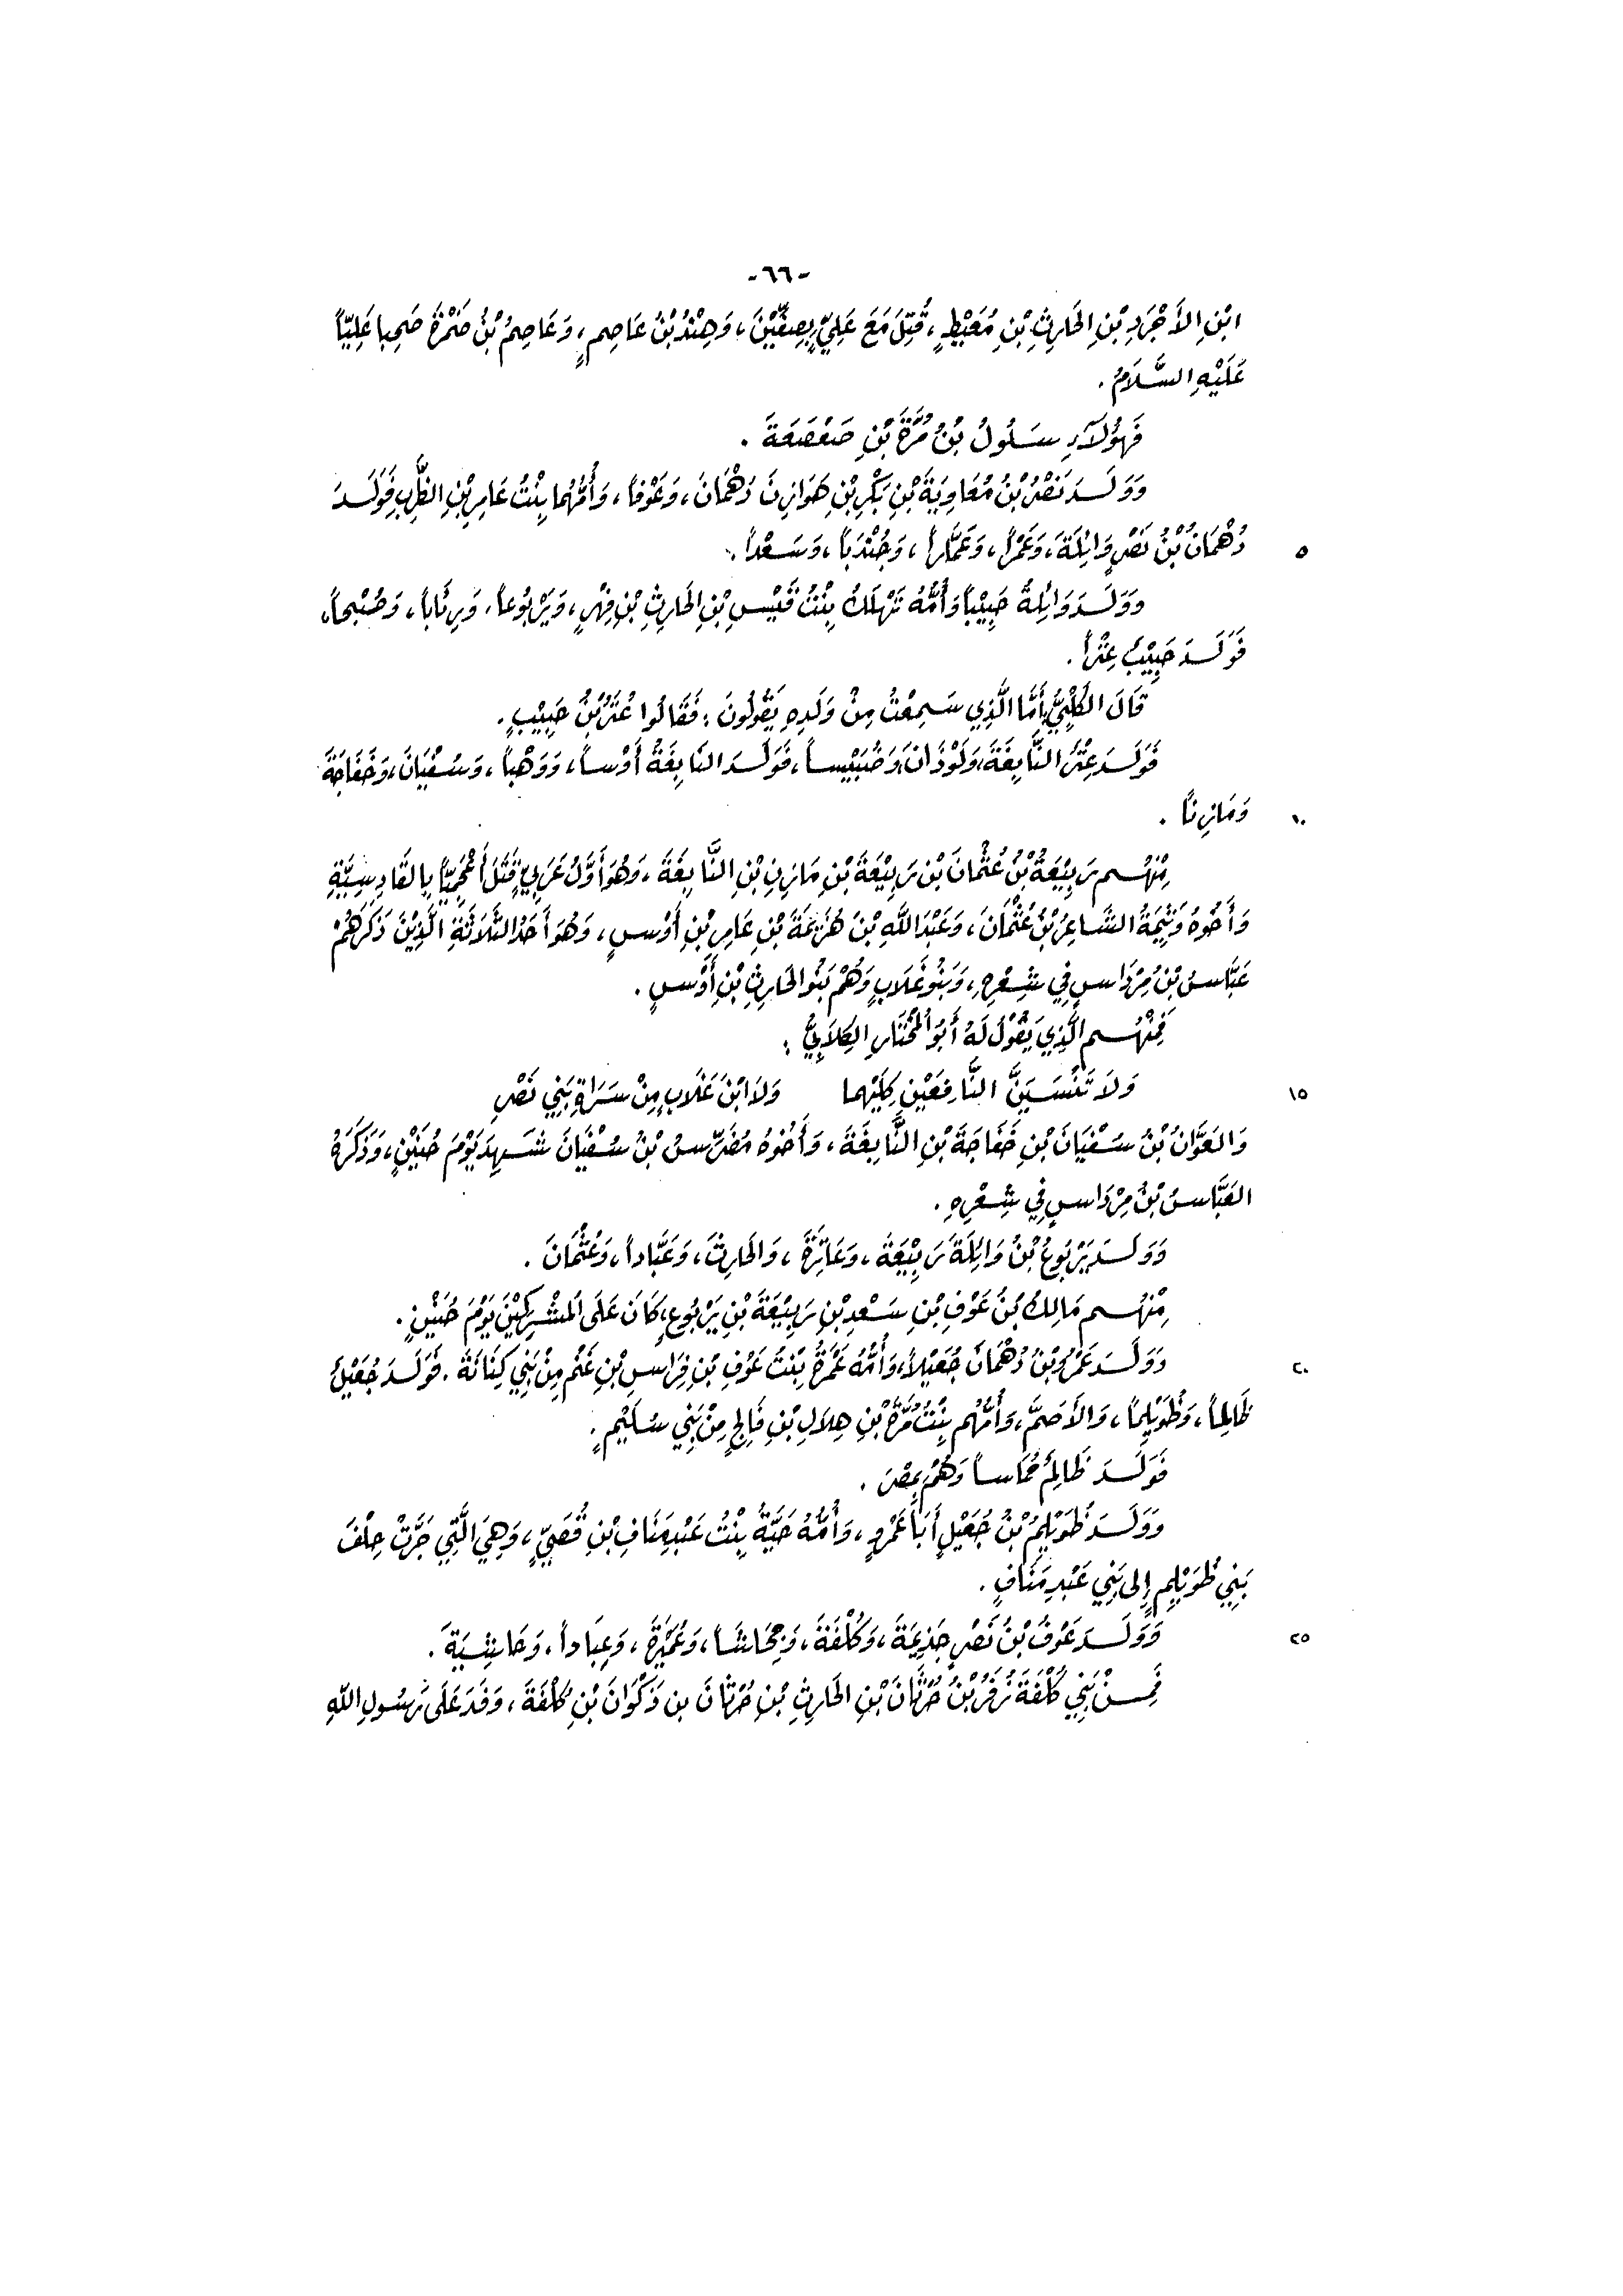 -٦٦-
ابْنِ الأَجْرَدِ بْنِ الحَارِثِ بْنِ مُعَيْطٍ، قُتِلَ مَعَ عَلِيٍّ بِصِفِّيْنَ، وَهِنْدُ بْنُ عَاصِمٍ، وَعَاصِمُ بْنُ ضَمْرَةَ صَحِبا عَلِيّاً
عَلَيْهِ السَّلَامُ.
فَهَؤُلَاءِ سَلُولُ بْنُ مُرَّةَ بْنِ صَعْصَعَةَ.
وَوَلَدَ نَصْرُ بْنُ مُعَاوِيَةَ بْنِ بَكْرِ بْنِ هَوَازِنَ دُهْمَانَ، وَعَوْفاً، وَأُمُّهُما بِنْتُ عَامِرِ بْنِ الظَّرِبِ فَوَلَدَ
٥ دُهْمَانُ بْنُ نَصْرٍ وَائِلَةَ، وَعَمْراً، وَعَمَّاراً، وَجُنْدَباً، وَسَعْداً.
وَوَلَدَ وَائِلَةُ حَبِيْباً وَأُمُّهُ تَمْلَكُ بِنْتُ قَيْسِ بْنِ الحَارِثِ بْنِ فِهْرٍ، وَيَرْبُوعاً، وَرِئَاباً، وَصُبْحاً،
فَوَلَدَ حَبِيْبُ عِتْراً.
قَالَ الكَلْبِيُّ، أَمَّا الَّذِي سَمِعْتُ مِنْ وَلَدِهِ يَقُولُونَ: فَقَالُوا عُتَرُ بْنُ حَبِيْبٍ.
فَوَلَدَ عِتْرُ النَّابِغَةَ، وَلَوْذَانَ، وَضُبَيْساً، فَوَلَدَ النَابِغَةُ أَوْساً، وَوَهْباً، وَسُفْيَانَ، وَخَفَاجَةَ
١٠ وَمَازِناً.
مِنْهُم رَبِيْعَةُ بْنُ عُثْمَانَ بْنِ رَبِيْعَةَ بْنِ مَازِنِ بْنِ النَّابِغَةَ، وَهُوَ أَوَّلُ عَرَبِيٍّ قَتَلَ أَعْجَمِيّاً بِالقَادِسِيَّةِ
وَأَخُوهُ وَثِيْمَةُ الشَّاعِرُ بْنُ عُثْمَانَ، وَعَبْدَ اللَّهِ بْنَ هُزَيْمَةَ بْنِ عَامِرِ بْنِ أَوْسٍ، وَهُوَ أَحَدُ الثَّلَاثَةِ الَّذِيْنَ ذَكَرَهُمْ
عَبَّاسُ بْنُ مِرْدَاسٍ فِي شِعْرِهِ، وَبَنُو غَلَابٍ وَهُمْ بَنُو الحَارِثِ بْنِ أَوْسٍ.
فَمِنْهُم الَّذِي يَقُوْلُ لَهُ أَبُو المُخْتَارِ الكِلَابِيُّ:
١٥ وَلاَ تَنْسَيَنَّ النَّافِعَيْنِ كِلَيْهِما وَلاَ ابْنَ غَلَابٍ مِنْ سَرَاةِ بَنِي نَصْرِ
وَالعَوَّانُ بْنُ سُفْيَانَ بْنِ خَفَاجَةَ بْنِ النَّابِغَةَ، وَأَخُوهُ مُضَرِّسُ بْنُ سُفْيَانَ شَهِدَ يَوْمَ حُنَيْنٍ، وَذَكَرَهُ
العَبَّاسُ بْنُ مِرْدَاسٍ فِي شِعْرِهِ.
وَوَلَدَ يَرْبُوعُ بْنُ وَائِلَةَ رَبِيْعَةَ، وَعَاتِرَةَ، وَالحَارِثَ، وَعَبَّاداً، وَعُثْمَانَ.
مِنْهُم مَالِكُ بْنُ عَوْفِ بْنِ سَعْدِ بْنِ رَبِيْعَةَ بْنِ يَرْبُوعٍ، كَانَ عَلَى المُشْرِكِيْنَ يَوْمَ حُنَيْنٍ.
٢٠ وَوَلَدَ عَمْرُو بْنُ دُهْمَانَ جُعَيْلاً، وَأُمُّهُ عَمْرَةُ بِنْتُ عَوْفِ بْنِ فِرَاسِ بْنِ غَنْمٍ مِنْ بَنِي كِنَانَةَ. فَوَلَدَ جُعَيْلُ
ظَالِماً، وَظُوَيْلِماً، وَالأَصَمَّ، وَأُمُّهُم بِنْتُ مُرَّةَ بْنِ هِلاَلِ بْنِ فَالِجٍ مِنْ بَنِي سُلَيْمٍ.
فَوَلَدَ ظَالِمُ حُمَاساً وَهُمْ بِمِصْرَ.
وَوَلَدَ ظُوَيْلِمُ بْنُ جُعَيْلٍ أَبَا عَمْرٍو، وَأُمُّهُ حَيَّةُ بِنْتُ عَبْدِ مَنَافِ بْنِ قُصَيٍّ، وَهِيَ الَّتِي جَرَّتْ حِلْفَ
بَنِي ظُوَيْلِمٍ إِلى بَنِي عَبْدِ مَنَافٍ.
٢٥ وَوَلَدَ عَوْفُ بْنُ نَصْرٍ جَذِيْمَةَ، وَكُلْفَةَ، وَجِحَاشاً، وَعُمَيْرَةَ، وَعِبَاداً، وَحَاشِيَةَ.
فَمِنْ بَنِي كُلْفَةَ زُفَرُ بْنُ حُرْثَانَ بْنِ الحَارِثِ بْنِ حُرْثَانَ بن ذَكْوَانَ بْنِ كُلْفَةَ، وَفَدَ عَلَى رَسُولِ اللَّهِ